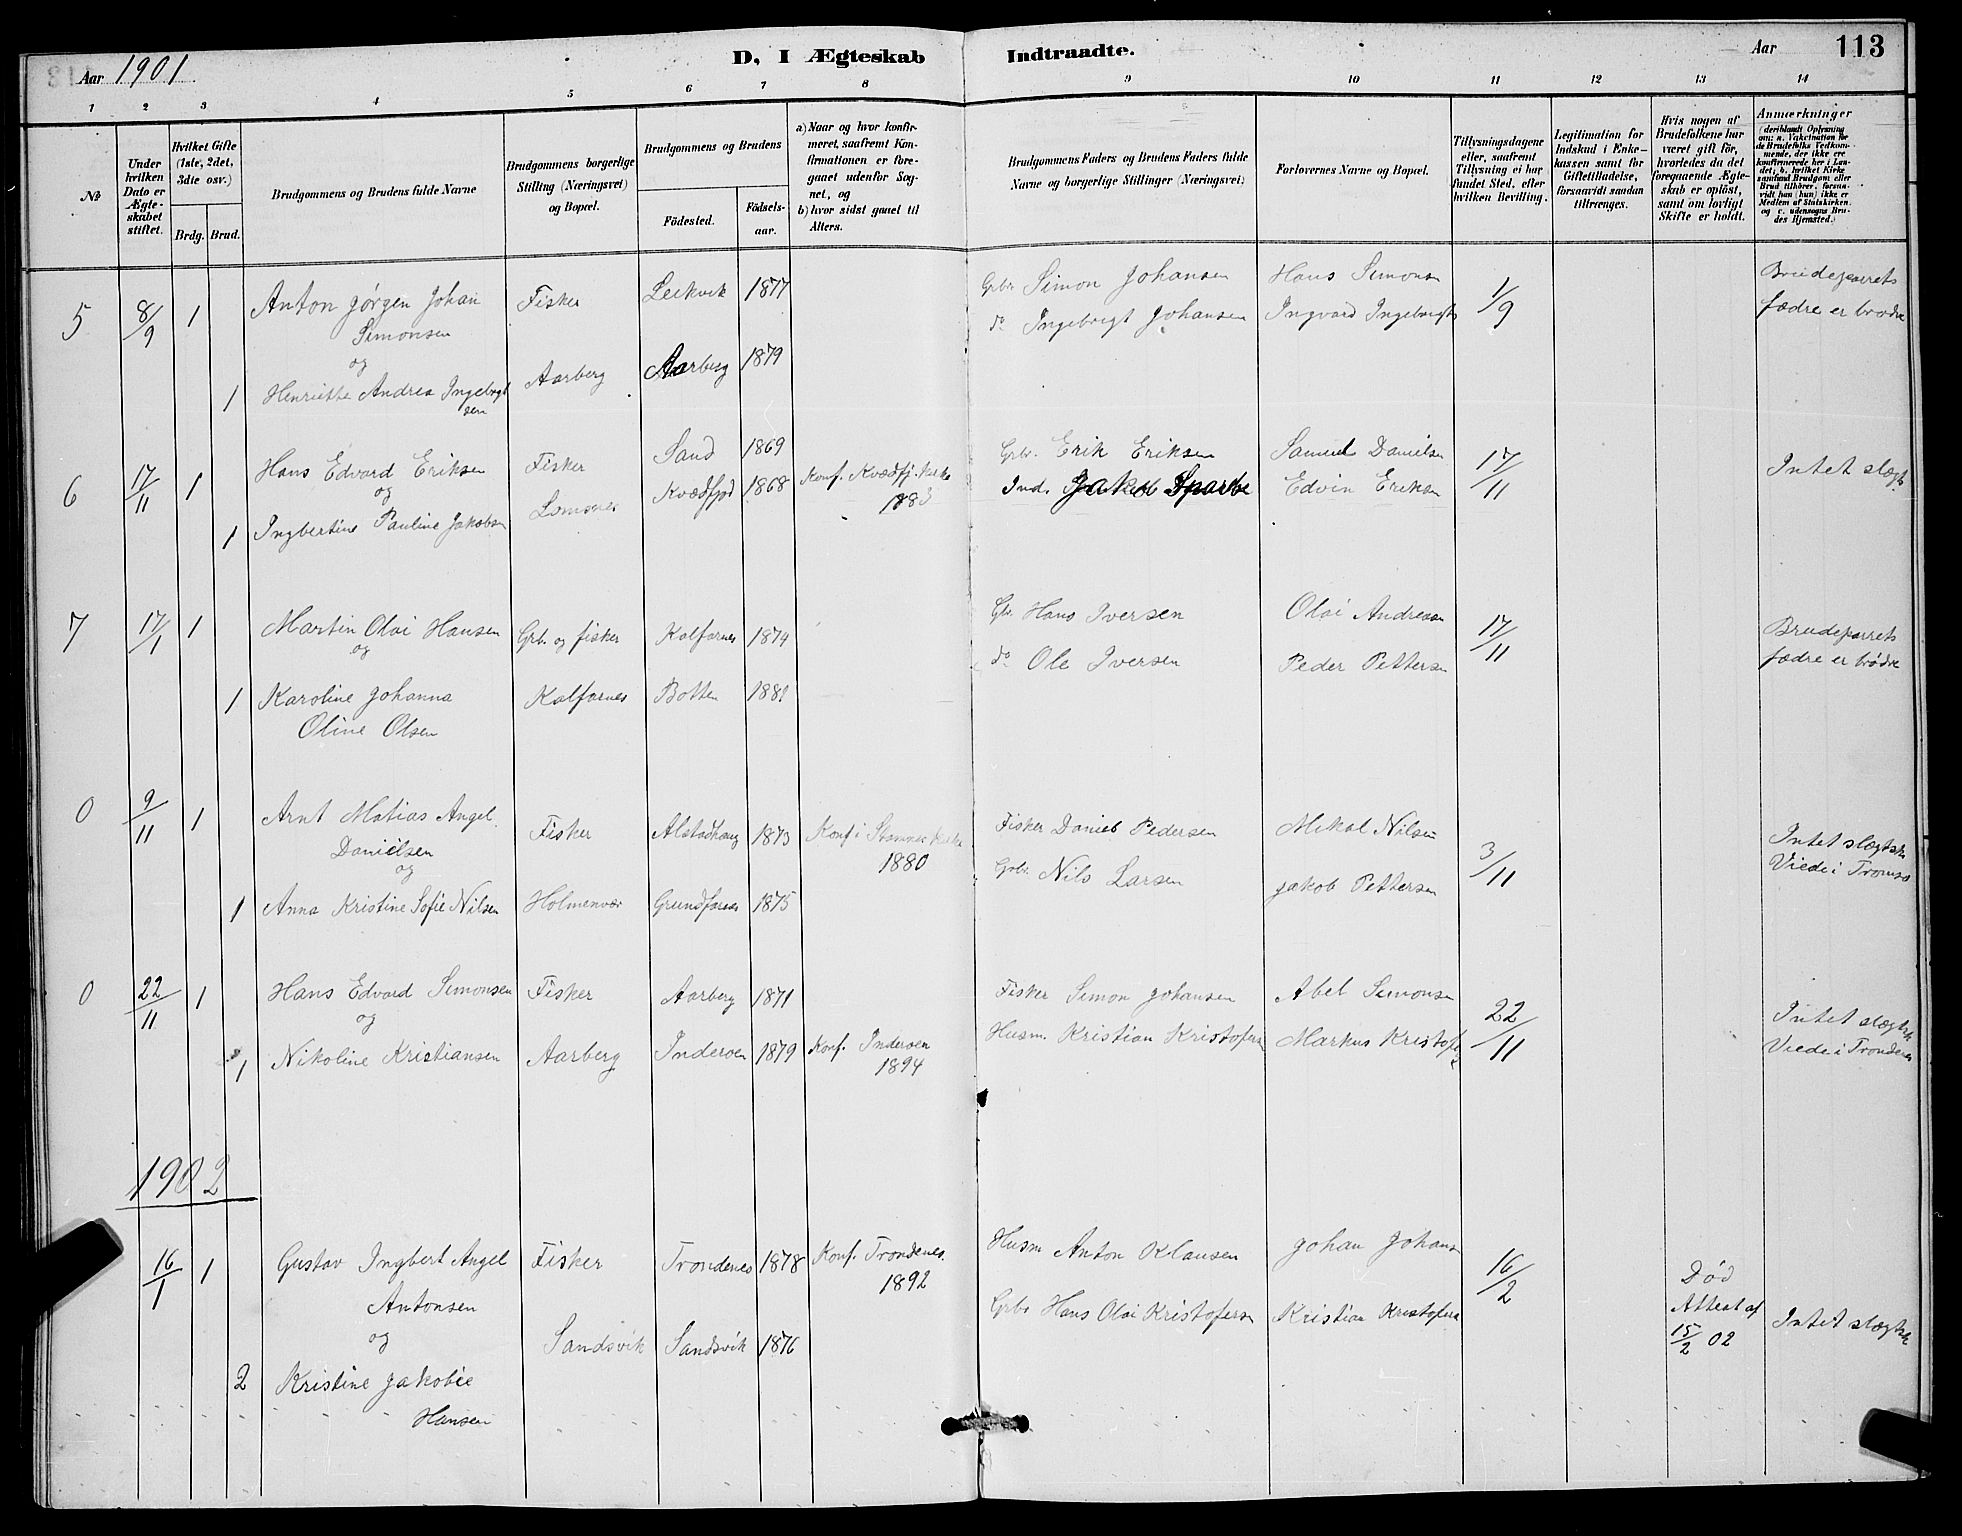 Aar 1901
D, I Ægteskab Indtraadte.
Aar 113
1 2 3 4 5 6 7 8 9 10 11 12 13 14
№
Under hvilken Dato er Ægteskabet stiftet.
Hvilket Gifte (1ste, 2det, 3die osv.)
Brdg. Brud.
Brudgommens og Brudens fulde Navne
Brudgommens borgerlige Stilling (Næringsvei) og Bopæl.
Brudgommens og Brudens
Födested.
Födselsaar.
a) Naar og hvor konfirmeret, saafremt Konfirmationen er foregaaet udenfor Sognet, og
b) hvor sidst gaaet til Alters.
Brudgommens Faders og Brudens Faders fulde Navne og borgerlige Stillinger (Næringsvei)
Forlovernes Navne og Bopæl.
Tillysningsdagene eller, saafremt Tillysning ei har fundet Sted, efter hvilken Bevilling.
Legitimation for Indskud i Enkekassen samt for Giftetilladelse, forsaavidt saadan tiltrænges.
Hvis nogen af Brudefolkene har været gift för, hvorledes da det foregaaende Ægteskab er oplöst, samt om lovligt Skifte er holdt.
Anmærkninger
(deriblandt Oplysning om: a. Vakcination for de Brudefolks Vedkommende, der ikke ere konfirmerede her i Landet; b. hvilket Kirkesamfund Brudgom eller Brud tilhører, forsaavidt han (hun) ikke er Medlem af Statskirken. og c. udensogns Brudes Hjemsted.)
5 8/9 1 Anton Jørgen Johan Fisker Leikvik 1877 Grbr. Simon Johansen Hans Simonsen 1/9 Brudeparrets
Simonsen do Ingebrigt Johansen Ingvard Ingebrigts fædre er brødre
og
1 Henriette Andrea Ingebrigt Aarberg Aarberg 1879
sen
6 17/11 1 Hans Edvard Eriksen Fisker Sand 1869 Grbr. Erik Eriksen Samuel Danielsen 17/11 Intet slægt.
og
1 Ingbertine Pauline Jakobsen Kvædfjod 1868 Konf. Kvædfj. Kirke Ind. Jakob Sparbo Edvin Eriksen
7 17/1 1 Martin Olai Hansen Grb. og fisker Kalfarnes 1874 Gr. Hans Iversen Olai Andreasen 17/11 Brudeparrets
og do Ole Iversen Peder Pettersen fædre er brødre
1 Karoline Johanna Kalfarnes Botten 1881
Oline Olsen
0 9/11 1 Arnt Matias Angel Fisker Alstadhaug 1873 Konf i Stamnes Kirke Fisker Daniel Pedersen Mikal Nilsen 3/11 Intet slægtsk
Danielsen 1880 Grbr. Nils Larsen Jakob Pettersen Viede i Tromsø
og
1 Anna Kristine Sofie Nilsen Holmenvær Grundfarnes 1875
0 22/11 1 Hans Edvard Simonsen Fisker Aarberg 1871 Fisker Simon Johansen Abel Simonsen 22/11 Intet slægtsk
og
1 Nikoline Kristiansen Aarberg Inderøen 1879 Konf. Inderøen Husm. Kristian Kristofersen Markus Kristofs Viede i Trondenes
1894
1902
16/1 1 Gustav Ingbert Angel Fisker Trondenes 1878 Konf. Trondenes Husm Anton Klausen Johan Johans 16/2 Død
Antonsen 1892 Grbr Hans Olai Kristofersen Kristian Kristofersen Attest af
og Sandsvik Sandsvik 1876 15/2 02 Intet slægtsk
2 Kristine Jakobie
Hansen